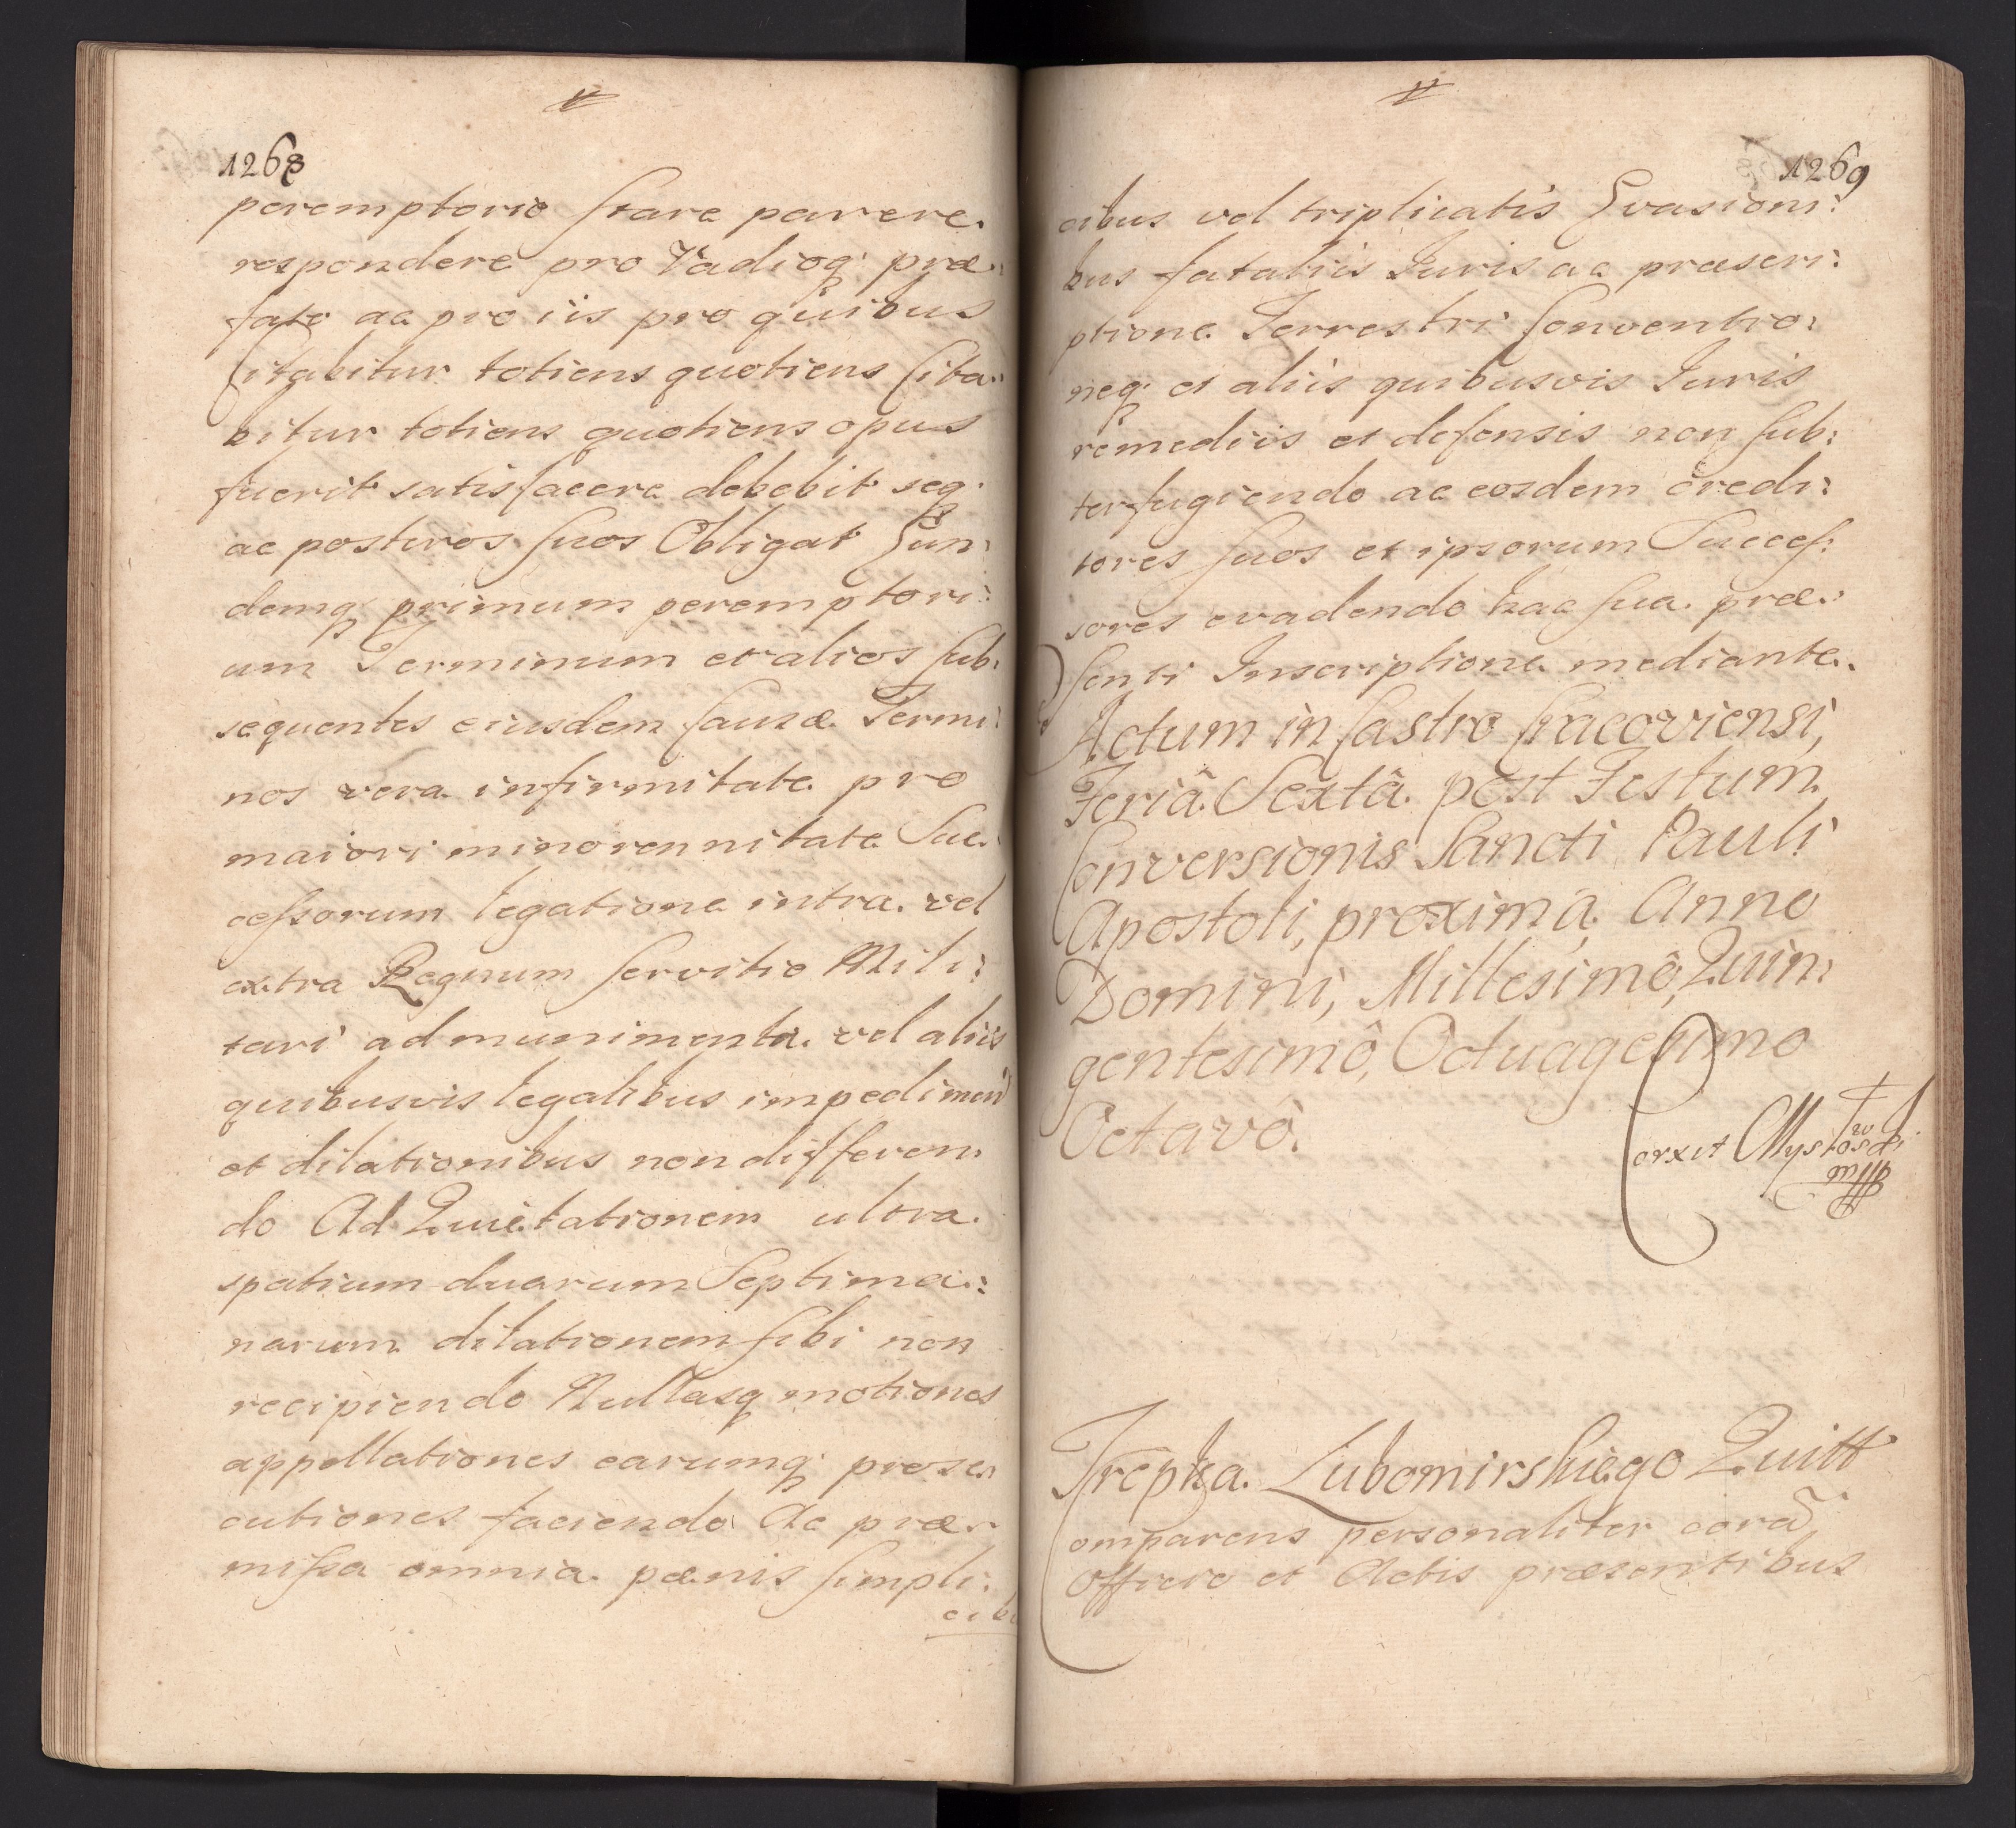 1268
peremptorio stare parere
respondere pro Vadioq. præ:
fato ac pro iis pro quibus
Citabitur totiens quotiens Cita:
bitur totiens quotiens opus
fuerit satisfacere debebit seq.
ac postiros suos Obligat Eun:
demq. primum peremptori:
um Terminum et alios sub:
sequentes eiusdem Causæ Termi:
nos vera infirmitate pro
maiori minorennitate Suc:
cessorum legatione intra vel
extra Regnum servitio Mili:
tari ad munimenta vel aliis
quibusvis legalibus impedimen
et dilationibus non differen:
do Ad Quietationem ultra
spatium duarum Septima:
narum dilationem sibi non
recipiendo Nullasq motiones
appellationes earumq. prose:
cutiones faciendo Ac præ:
missa omnia pænis simpli:
cib
1269
cibus vel triplicatis Evasioni:
bus fataliis Iuris ac præscri:
ptione Terrestri Conventio:
neq. et aliis quibusvis Iuris
remediis et defensis non sub:
terfugiendo ac eosdem credi:
tores suos et ipsorum Succes:
sores evadendo hac sua præ:
senti Inscriptione mediante.
Actum in Castro Cracoviensi,
Feriâ Sextâ post Festum
Conversionis Sancti Pauli
Apostoli, proximâ, Anno
Domini, Millesimô, Quin:
gentesimô, Octuagesimo
Octavô.
Corxit
Trepka Lubomirskiego Quitt
Comparens personaliter corã
Officio et Actis præsentibus